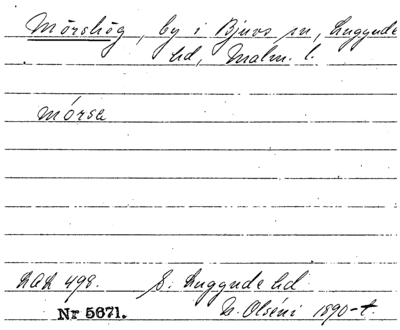 Mörshög, by i Bjuvs sn, Luggude
hd, Malm. l.
mórsa
LAL 498. S. Luggude hd
Nr 5671. N. Olséni 1890-t.